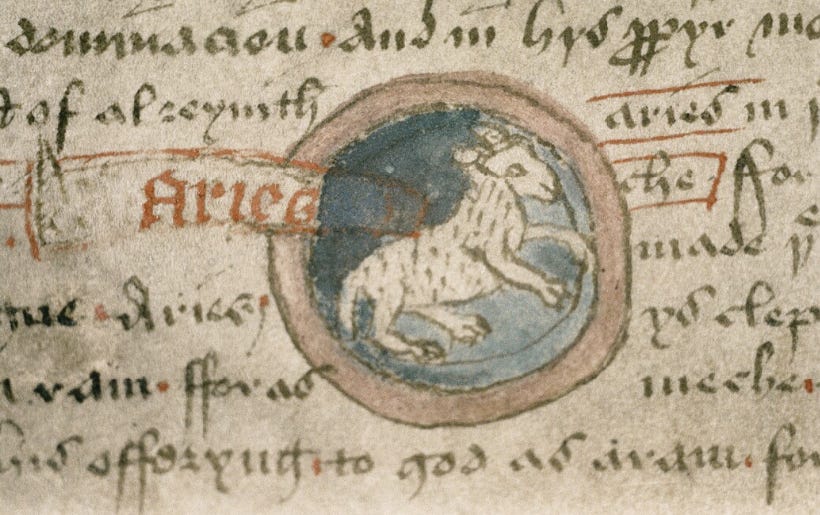 dominacion · And in hys ppyr
of al reynith aries in
Aries the ffor
made yͤ
gue · Aries ys clep
a ram · fforas meche ·
hys offeryng · to god as aram · for